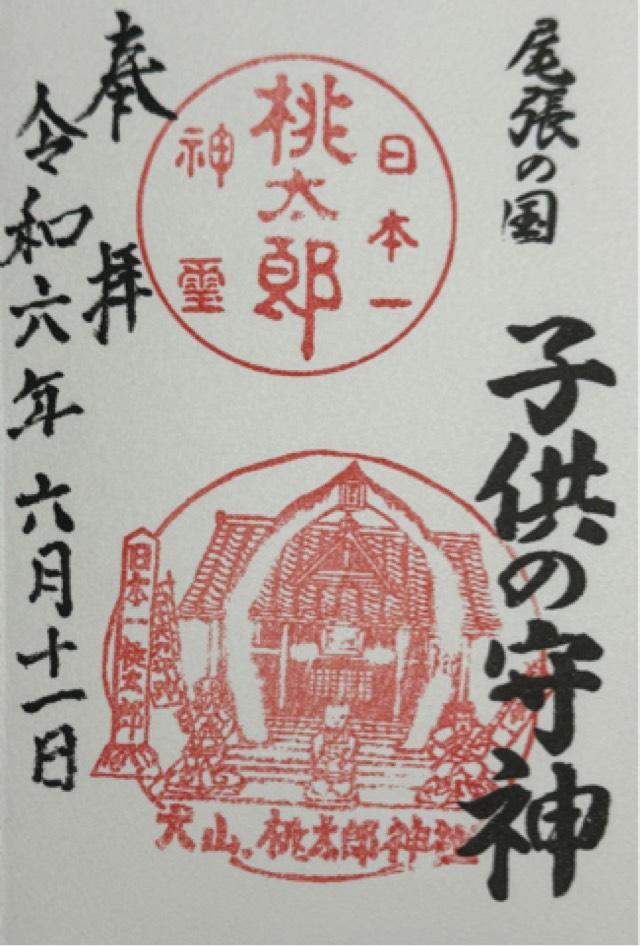 尾張の国
子供の守神
日本一
桃太郎
神霊
奉拝
令和六年六月十一日
日本一桃太郎
犬山、桃太郎神社